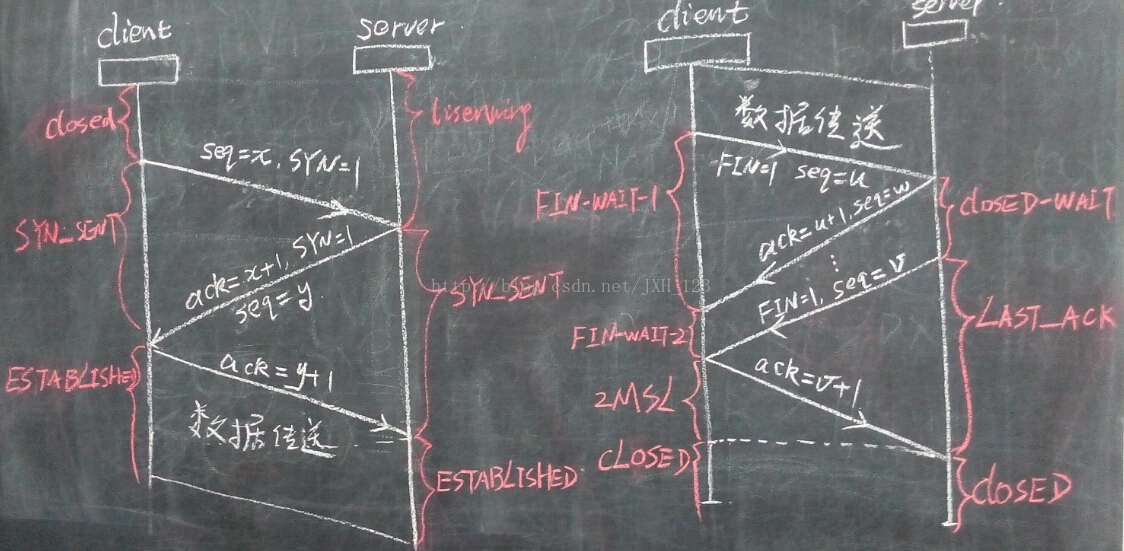 client
server
closed
lisenning
seq=x, SYN=1
SYN_SENT
ack=x+1, SYN=1
seq=y
SYN_SENT
ESTABLISHED
ack=y+1
数据传送
ESTABLISHED
client
server
数据传送
FIN=1 seq=u
FIN-WAIT-1
CLOSED-WAIT
ack=u+1, seq=w
⋮
FIN=1, seq=v
FIN-WAIT-2
LAST_ACK
ack=v+1
2MSL
CLOSED
CLOSED